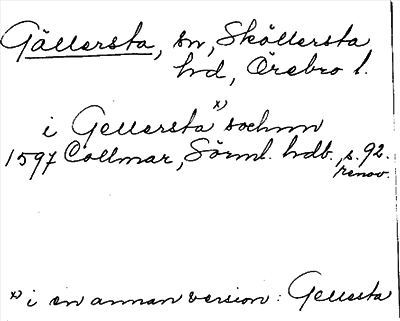 Gällersta, sn, Sköllersta
hd, Örebro l.
i Gellersta x) sochnn
1597 Collmar, Sörml. hdb. s. 92.
renov.
x) i en annan version: Gellesta